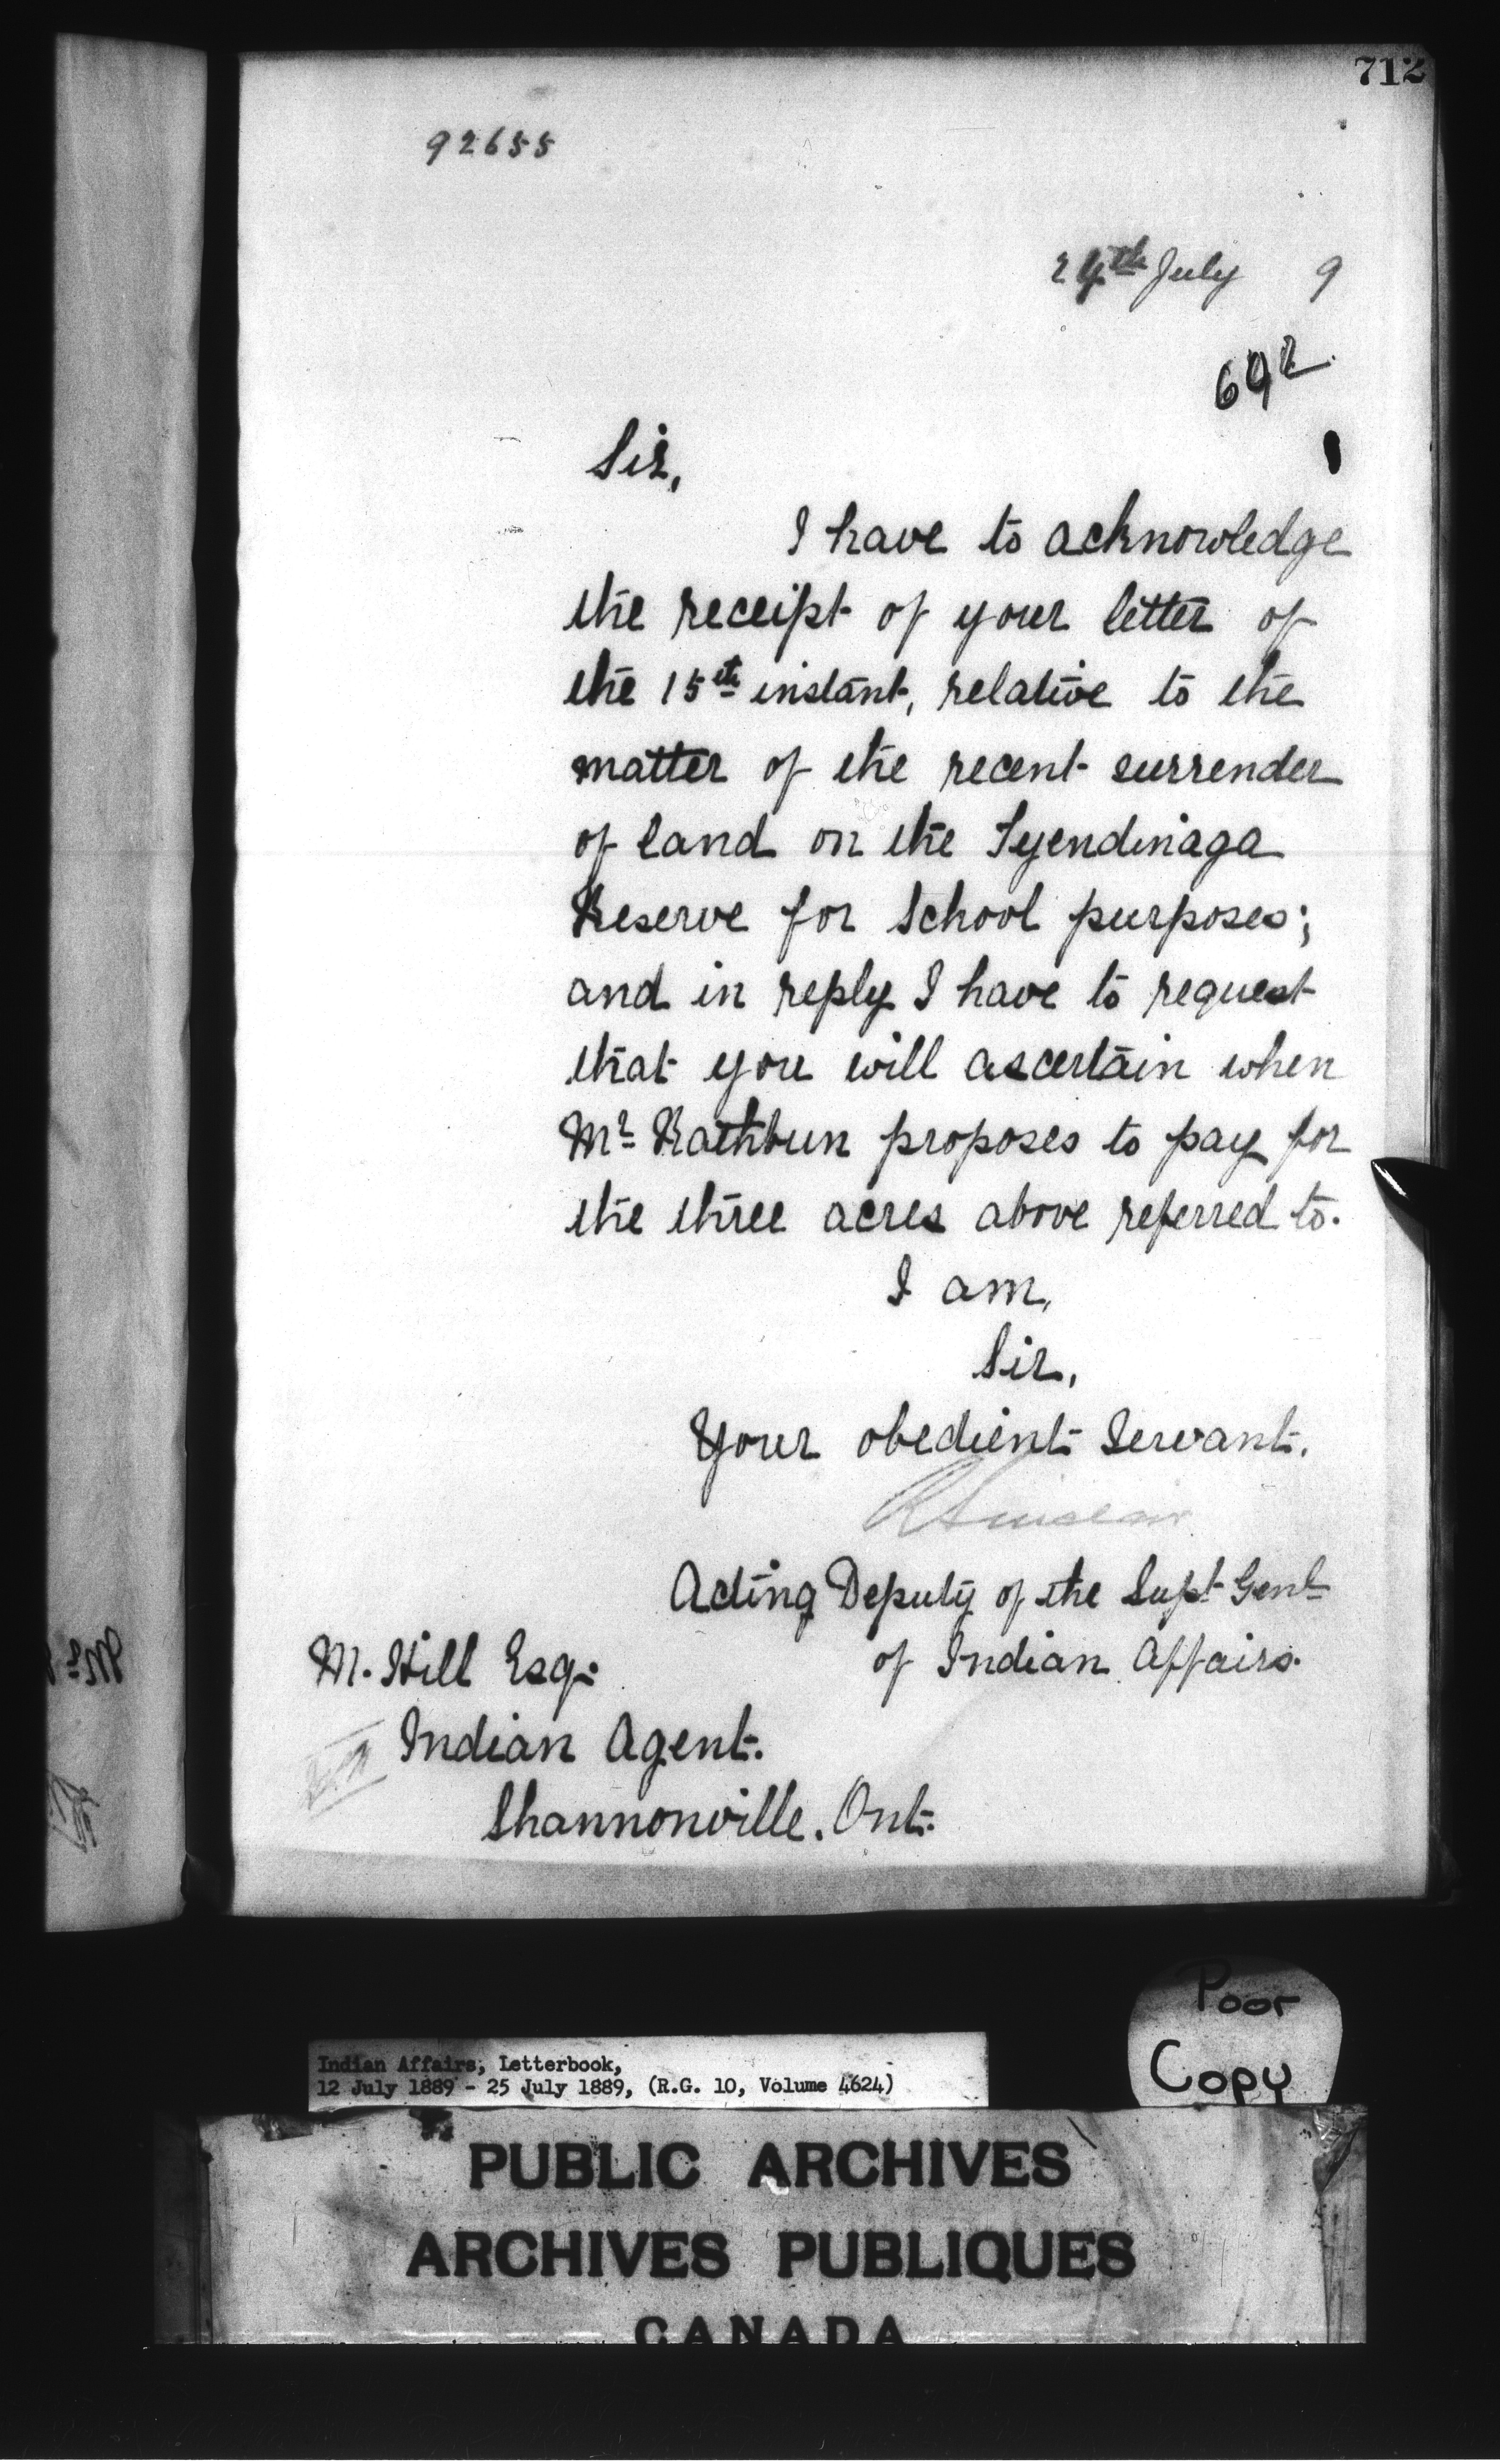 712
92655
24th July 9
692
Sir,
I have to acknowledge
the receipt of your letter of
the 15th instant, relative to the
matter of the recent surrender
of land on the Tyendinaga
Reserve for School purposes;
and in reply I have to request
that you will ascertain when
Mr Rathbun proposes to pay for
the three acres above referred to.
I am,
Sir,
Your obedient Servant.
R Sinclair
Acting Deputy of the Supt Genl
of Indian Affairs.
M. Hill Esq:
Indian Agent.
Shannonville. Ont.
Poor
Copy
Indian Affairs, Letterbook,
12 July 1889 - 25 July 1889, (R.G. 10, Volume 4624)
PUBLIC ARCHIVES
ARCHIVES PUBLIQUES
CANADA